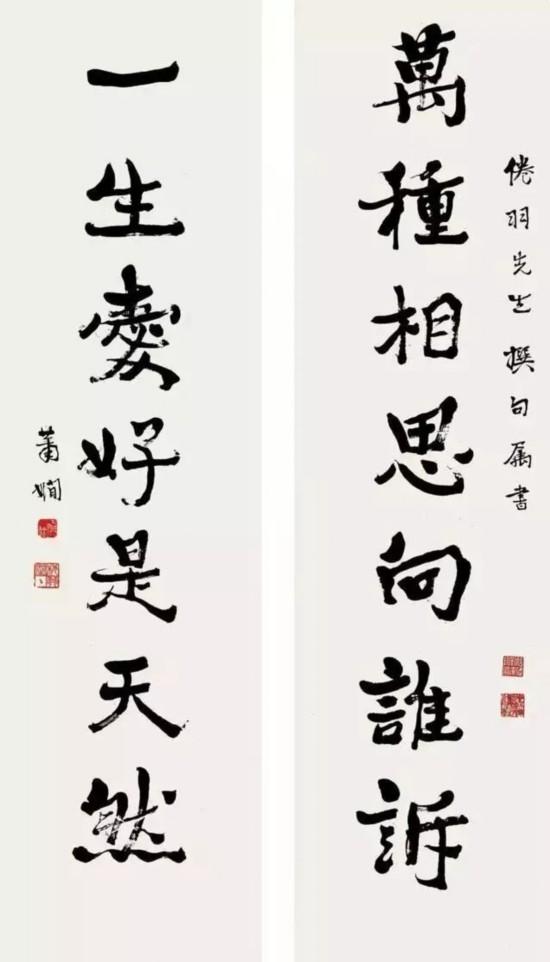 倦羽先生撰句属書
萬種相思向誰訴
一生愛好是天然
蕭嫺